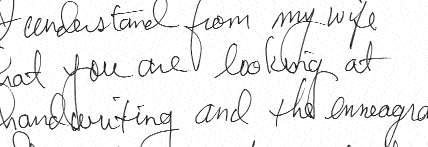 I understand from my wife
hat you are looking at
handwriting and the enneagra